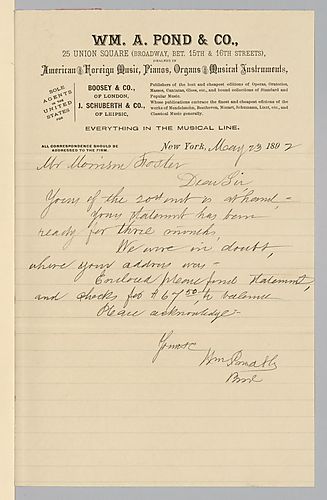 WM. A. POND & CO.,
25 UNION SQUARE (BROADWAY, BET. 15TH & 16TH STREETS),
DEALERS IN
American and Foreign Music, Pianos, Organs and Musical Instruments,
SOLE AGENTS IN THE UNITED STATES FOR
BOOSEY & CO.,
OF LONDON,
J. SCHUBERTH & CO.,
OF LEIPSIC,
Publishers of the best and cheapest editions of Operas, Oratorios,
Masses, Cantatas, Glees, etc., and bound collections of Standard and
Popular Music.
Whose publications embrace the finest and cheapest editions of the
works of Mendelssohn, Beethoven, Mozart, Schumann, Liszt, etc., and
Classical Music generally.
EVERYTHING IN THE MUSICAL LINE.
ALL CORRESPONDENCE SHOULD BE
ADDRESSED TO THE FIRM.
New York, May 23 1892
Mr Morrison Foster
Dear Sir
Yours of the 20th inst is at hand -
your statement has been
ready for three months
We were in doubt,
where your address was -
Enclosed please find statement
and checks for $67.50 to balance
Please acknowledge -
Yours
Wm Pond & Co